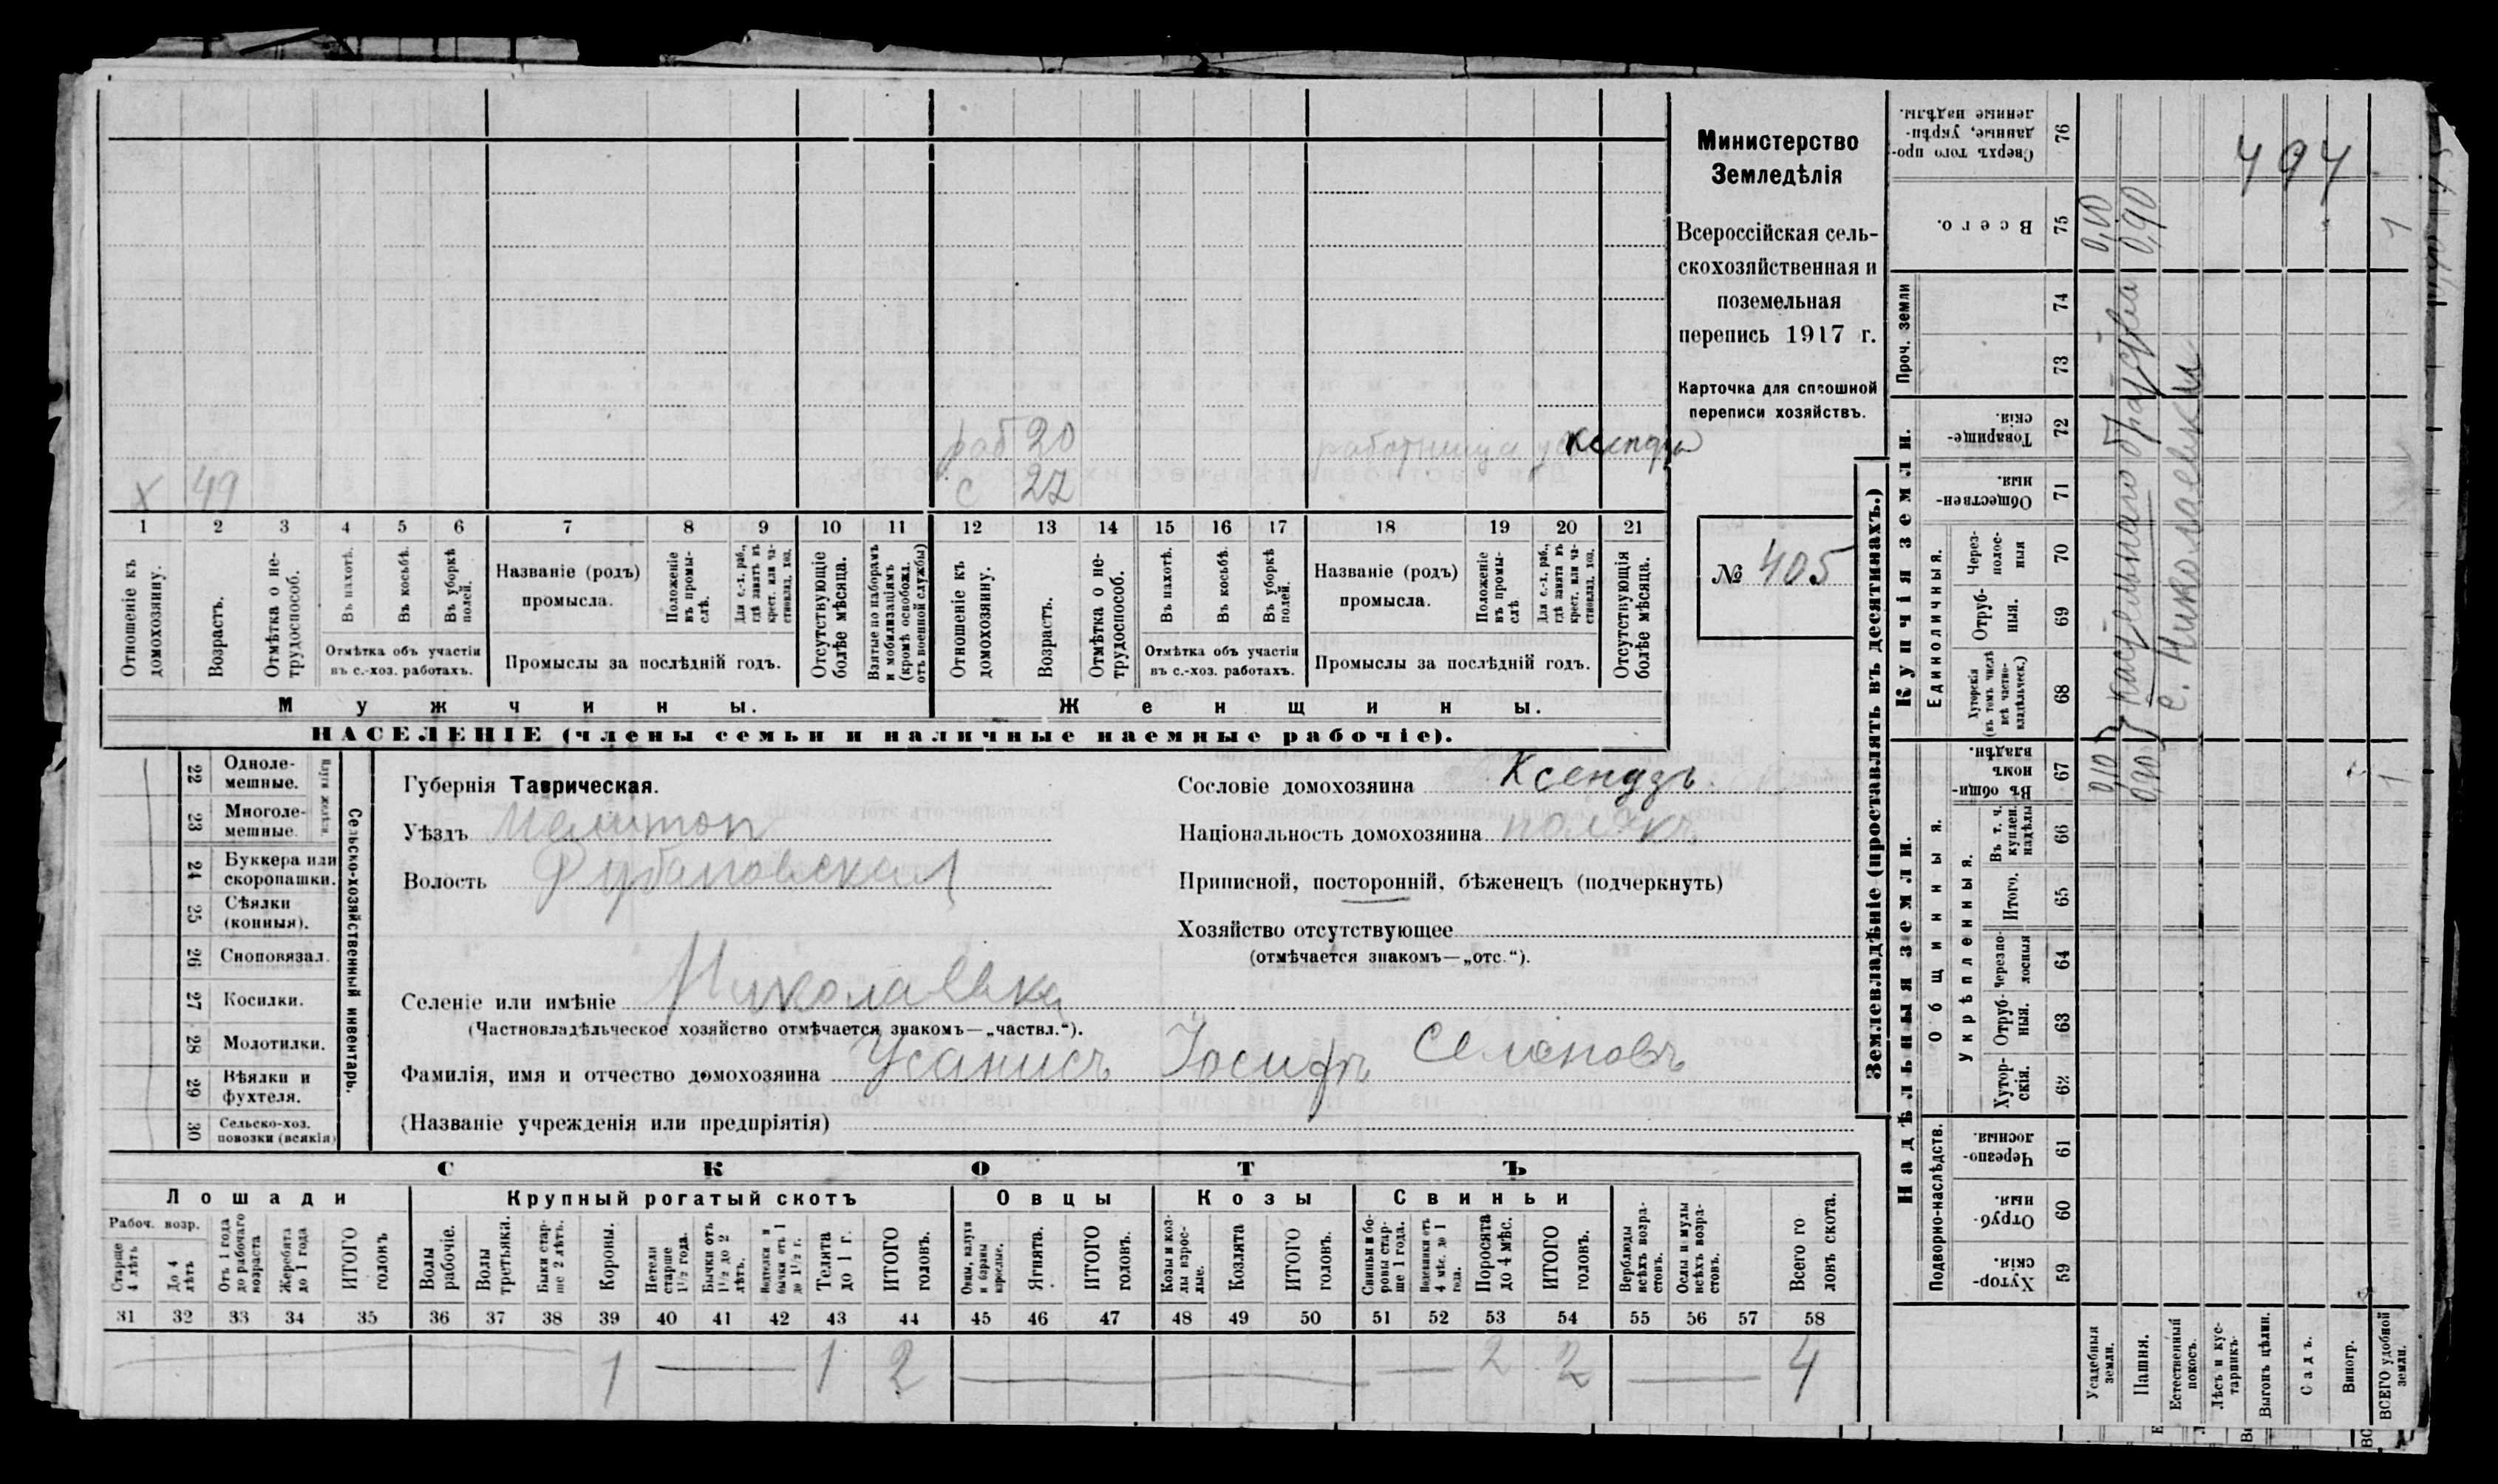 раб 20 работница у ксендза
х 49 с 27
1 2 3 4 5 6 7 8 9 10 11 12 13 14 15 16 17 18 19 20 21
Отношеніе къ домохозяину.
Возрастъ.
Отмѣтка о не-
трудоспособ.
Въ пахотѣ.
Въ косьбѣ.
Въ уборкѣ полей.
Отмѣтка объ участіи
въ с.-хоз. работахъ.
Названіе (родъ)
промысла.
Положеніе въ промы-
слѣ.
Для с.-х. раб., гдѣ занятъ въ крест. или ча-
стновлад. хоз.
Промыслы за послѣдній годъ.
Отсутствующіе болѣе мѣсяца.
Взятые по наборамъ и мобилизаціямъ (кромѣ освобожд. отъ военной службы)
Отношеніе къ домохозяину.
Возрастъ.
Отмѣтка о не-
трудоспособ.
Въ пахотѣ.
Въ косьбѣ.
Въ уборкѣ полей.
Отмѣтка объ участіи
въ с.-хоз. работахъ.
Названіе (родъ)
промысла.
Положеніе въ промы-
слѣ
Для с.-х. раб., гдѣ занята въ крест. или ча-
стновлад. хоз.
Промыслы за послѣдній годъ.
Отсутствующія болѣе мѣсяца.
Мужчины. Женщины.
НАСЕЛЕНІЕ (члены семьи и наличные наемные рабочіе).
Министерство
Земледѣлія
Всероссійская сель-
скохозяйственная и
поземельная
перепись 1917 г.
Карточка для сплошной
переписи хозяйствъ.
№ 405
22 Одноле-
мешные.
23 Многоле-
мешные.
24 Буккера или
скоропашки.
25 Сѣялки
(конныя).
26 Сноповязал.
27 Косилки.
28 Молотилки.
29 Вѣялки и
фухтеля.
30 Сельско-хоз.
повозки (всякія)
Сельско-хозяйственный инвентарь.
Губернія Таврическая.
Уѣздъ Мелитоп
Волость
Селеніе или имѣніе Николаевка
(Частновладѣльческое хозяйство отмѣчается знакомъ—„частвл.“).
Сословіе домохозяина Ксендзъ.
Національность домохозяина полякъ
Приписной, посторонній, бѣженецъ (подчеркнуть)
Хозяйство отсутствующее
(отмѣчается знакомъ—„отс.“).
Фамилія, имя и отчество домохозяина Усанисъ Іосифъ Семеновъ
(Названіе учрежденія или предпріятія)
СКОТЪ
Лошади Крупный рогатый скотъ Овцы Козы Свиньи
Рабоч. возр.
Старше 4 лѣтъ
До 4 лѣтъ
Отъ 1 года до рабочаго возраста
Жеребята до 1 года
ИТОГО головъ
Волы рабочіе.
Волы третьяки.
Быки стар-
ше 2 лѣтъ.
Коровы.
Нетели старше 1½ года.
Бычки отъ 1½ до 2 лѣтъ.
Нетелки и бычки отъ 1 до 1½ г.
Телята до 1 г.
ИТОГО головъ.
Овцы, валухи и бараны взрослые.
Ягнята.
ИТОГО головъ.
Козы и коз-
лы взрос-
лые.
Козлята
ИТОГО головъ.
Свиньи и бо-
ровы стар-
ше 1 года.
Подсвинки отъ 4 мѣс. до 1 года.
Поросята до 4 мѣс.
ИТОГО головъ.
Верблюды всѣхъ возра-
стовъ.
Ослы и мулы всѣхъ возра-
стовъ.
Всего го
ловъ скота.
31 32 33 34 35 36 37 38 39 40 41 42 43 44 45 46 47 48 49 50 51 52 53 54 55 56 57 58
1 1 2 2 2 4
Землевладѣніе (проставлять въ десятинахъ.)
Надѣльныя земли. Купчія земли. Проч. земли
Подворно-наслѣдств.
Общинныя.
Укрѣпленныя.
Единоличныя.
Хутор-
скія. 59
Отруб-
ныя. 60
Черезпо-
лосныя. 61
Хутор-
скія. 62
Отруб-
ныя. 63
Черезпо-
лосныя 64
Итого. 65
Въ т. ч. куплен. надѣлы 66
Въ общи-
номъ владѣн. 67
Хуторскія (въ томъ числѣ всѣ частно-
владѣльческ.) 68
Отруб-
ныя. 69
Через-
полос-
ныя 70
Обществен-
ныя. 71
Товарище-
скія. 72
73
74
Всего. 75
Сверхъ того про-
данные, укрѣп-
ленные надѣлы. 76
Усадебныя земли.
Пашня.
Естественный покосъ.
Лѣсъ и кус-
тарникъ.
Выгонъ цѣлин.
Садъ.
Виногр.
ВСЕГО удобной земли.
0,10 0,10
0,90 0,90
с. Николаевки
1 1
494